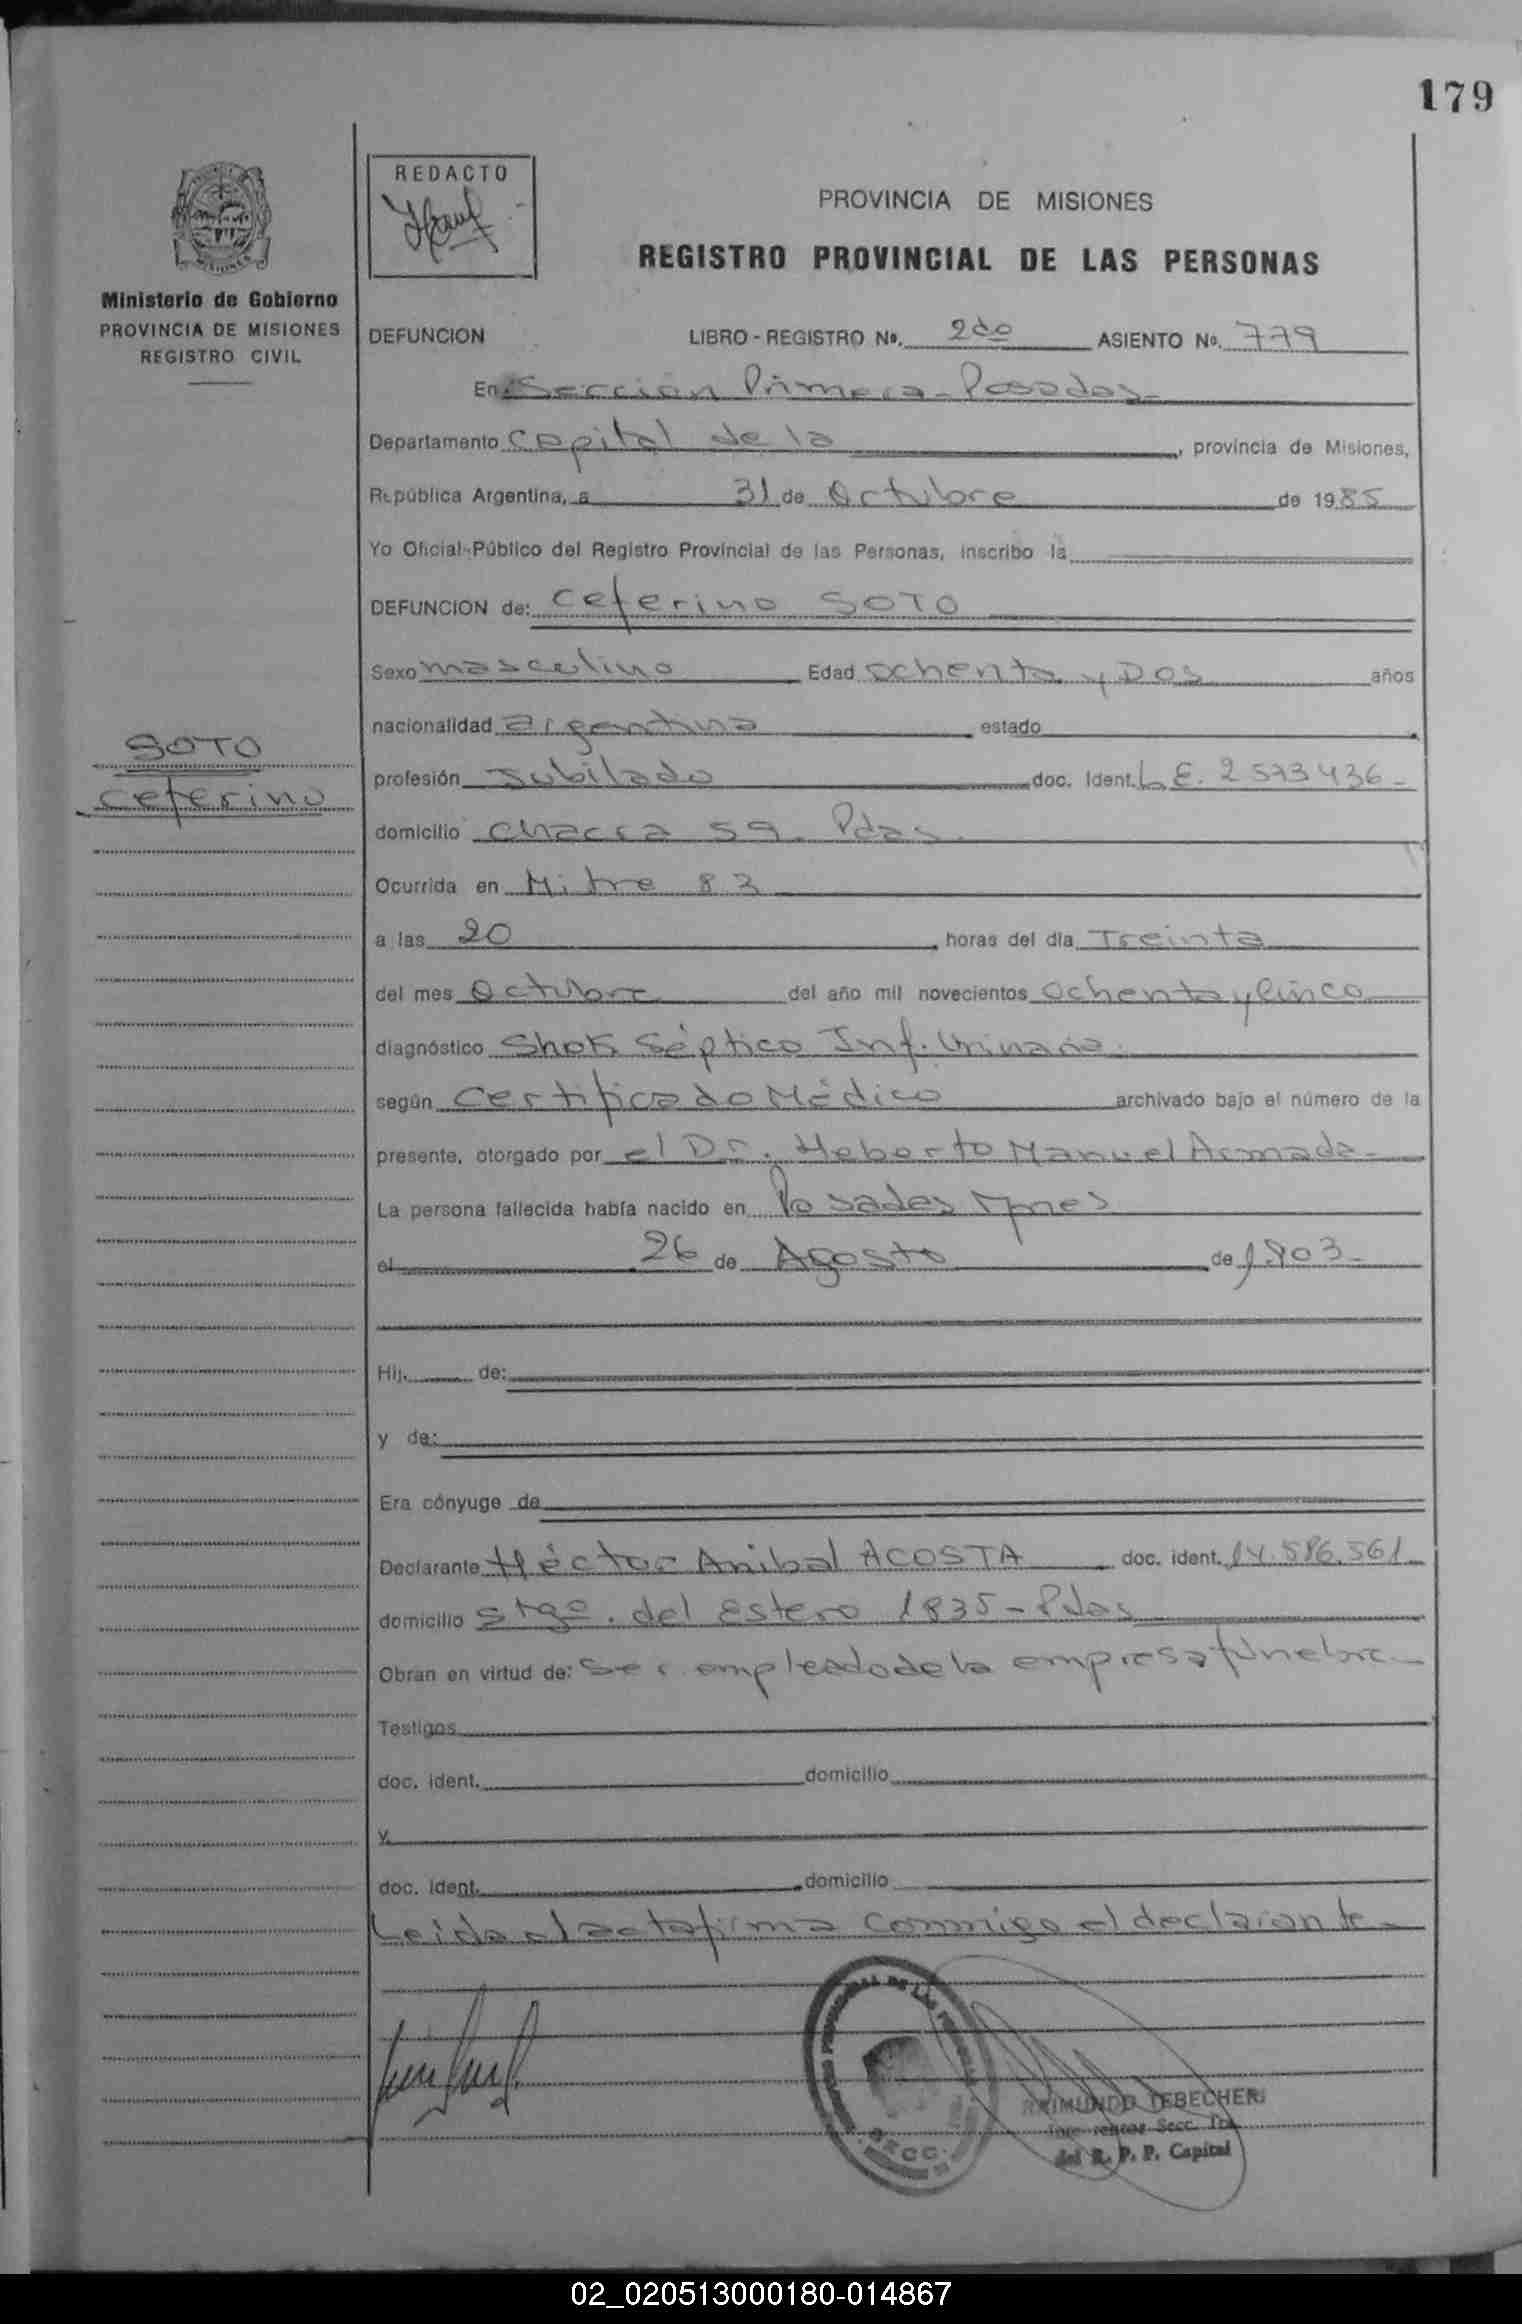 179
REDACTO
PROVINCIA DE MISIONES
REGISTRO PROVINCIAL DE LAS PERSONAS
MISIONES
Ministerio de Gobierno
PROVINCIA DE MISIONES
REGISTRO CIVIL
DEFUNCION LIBRO - REGISTRO Nº. 2do ASIENTO Nº. 779
En Sección Primera - Posadas -
Departamento Capital de la , provincia de Misiones,
República Argentina, a 31 de Octubre de 1985
Yo Oficial Público del Registro Provincial de las Personas, inscribo la
DEFUNCION de: Ceferino SOTO
Sexo masculino Edad ochenta y Dos años
nacionalidad argentina estado
SOTO
Ceferino
profesión Jubilado doc. Ident. L.E. 2 573 436 -
domicilio Chacra 59. Pdas.
Ocurrida en Mitre 83
a las 20 , horas del día Treinta
del mes Octubre del año mil novecientos Ochenta y Cinco
diagnóstico Shok Séptico Inf. Urinaria.
según Certificado Médico archivado bajo el número de la
presente, otorgado por el Dr. Heberto Manuel Armada -
La persona fallecida había nacido en Posadas Mnes
el 26 de Agosto de 1903 -
Hij. de:
y de:
Era cónyuge de
Declarante Héctor Anibal ACOSTA doc. ident. 14.586.561
domicilio Stgo. del Estero 1835 - Pdas
Obran en virtud de: Ser empleado de la empresa fúnebre -
Testigos
doc. ident. domicilio
y
doc. ident. domicilio
Leida el acta firma conmigo el declarante -
RAIMUNDO TEBECHERI
del R. P. P. Capital
02_020513000180-014867